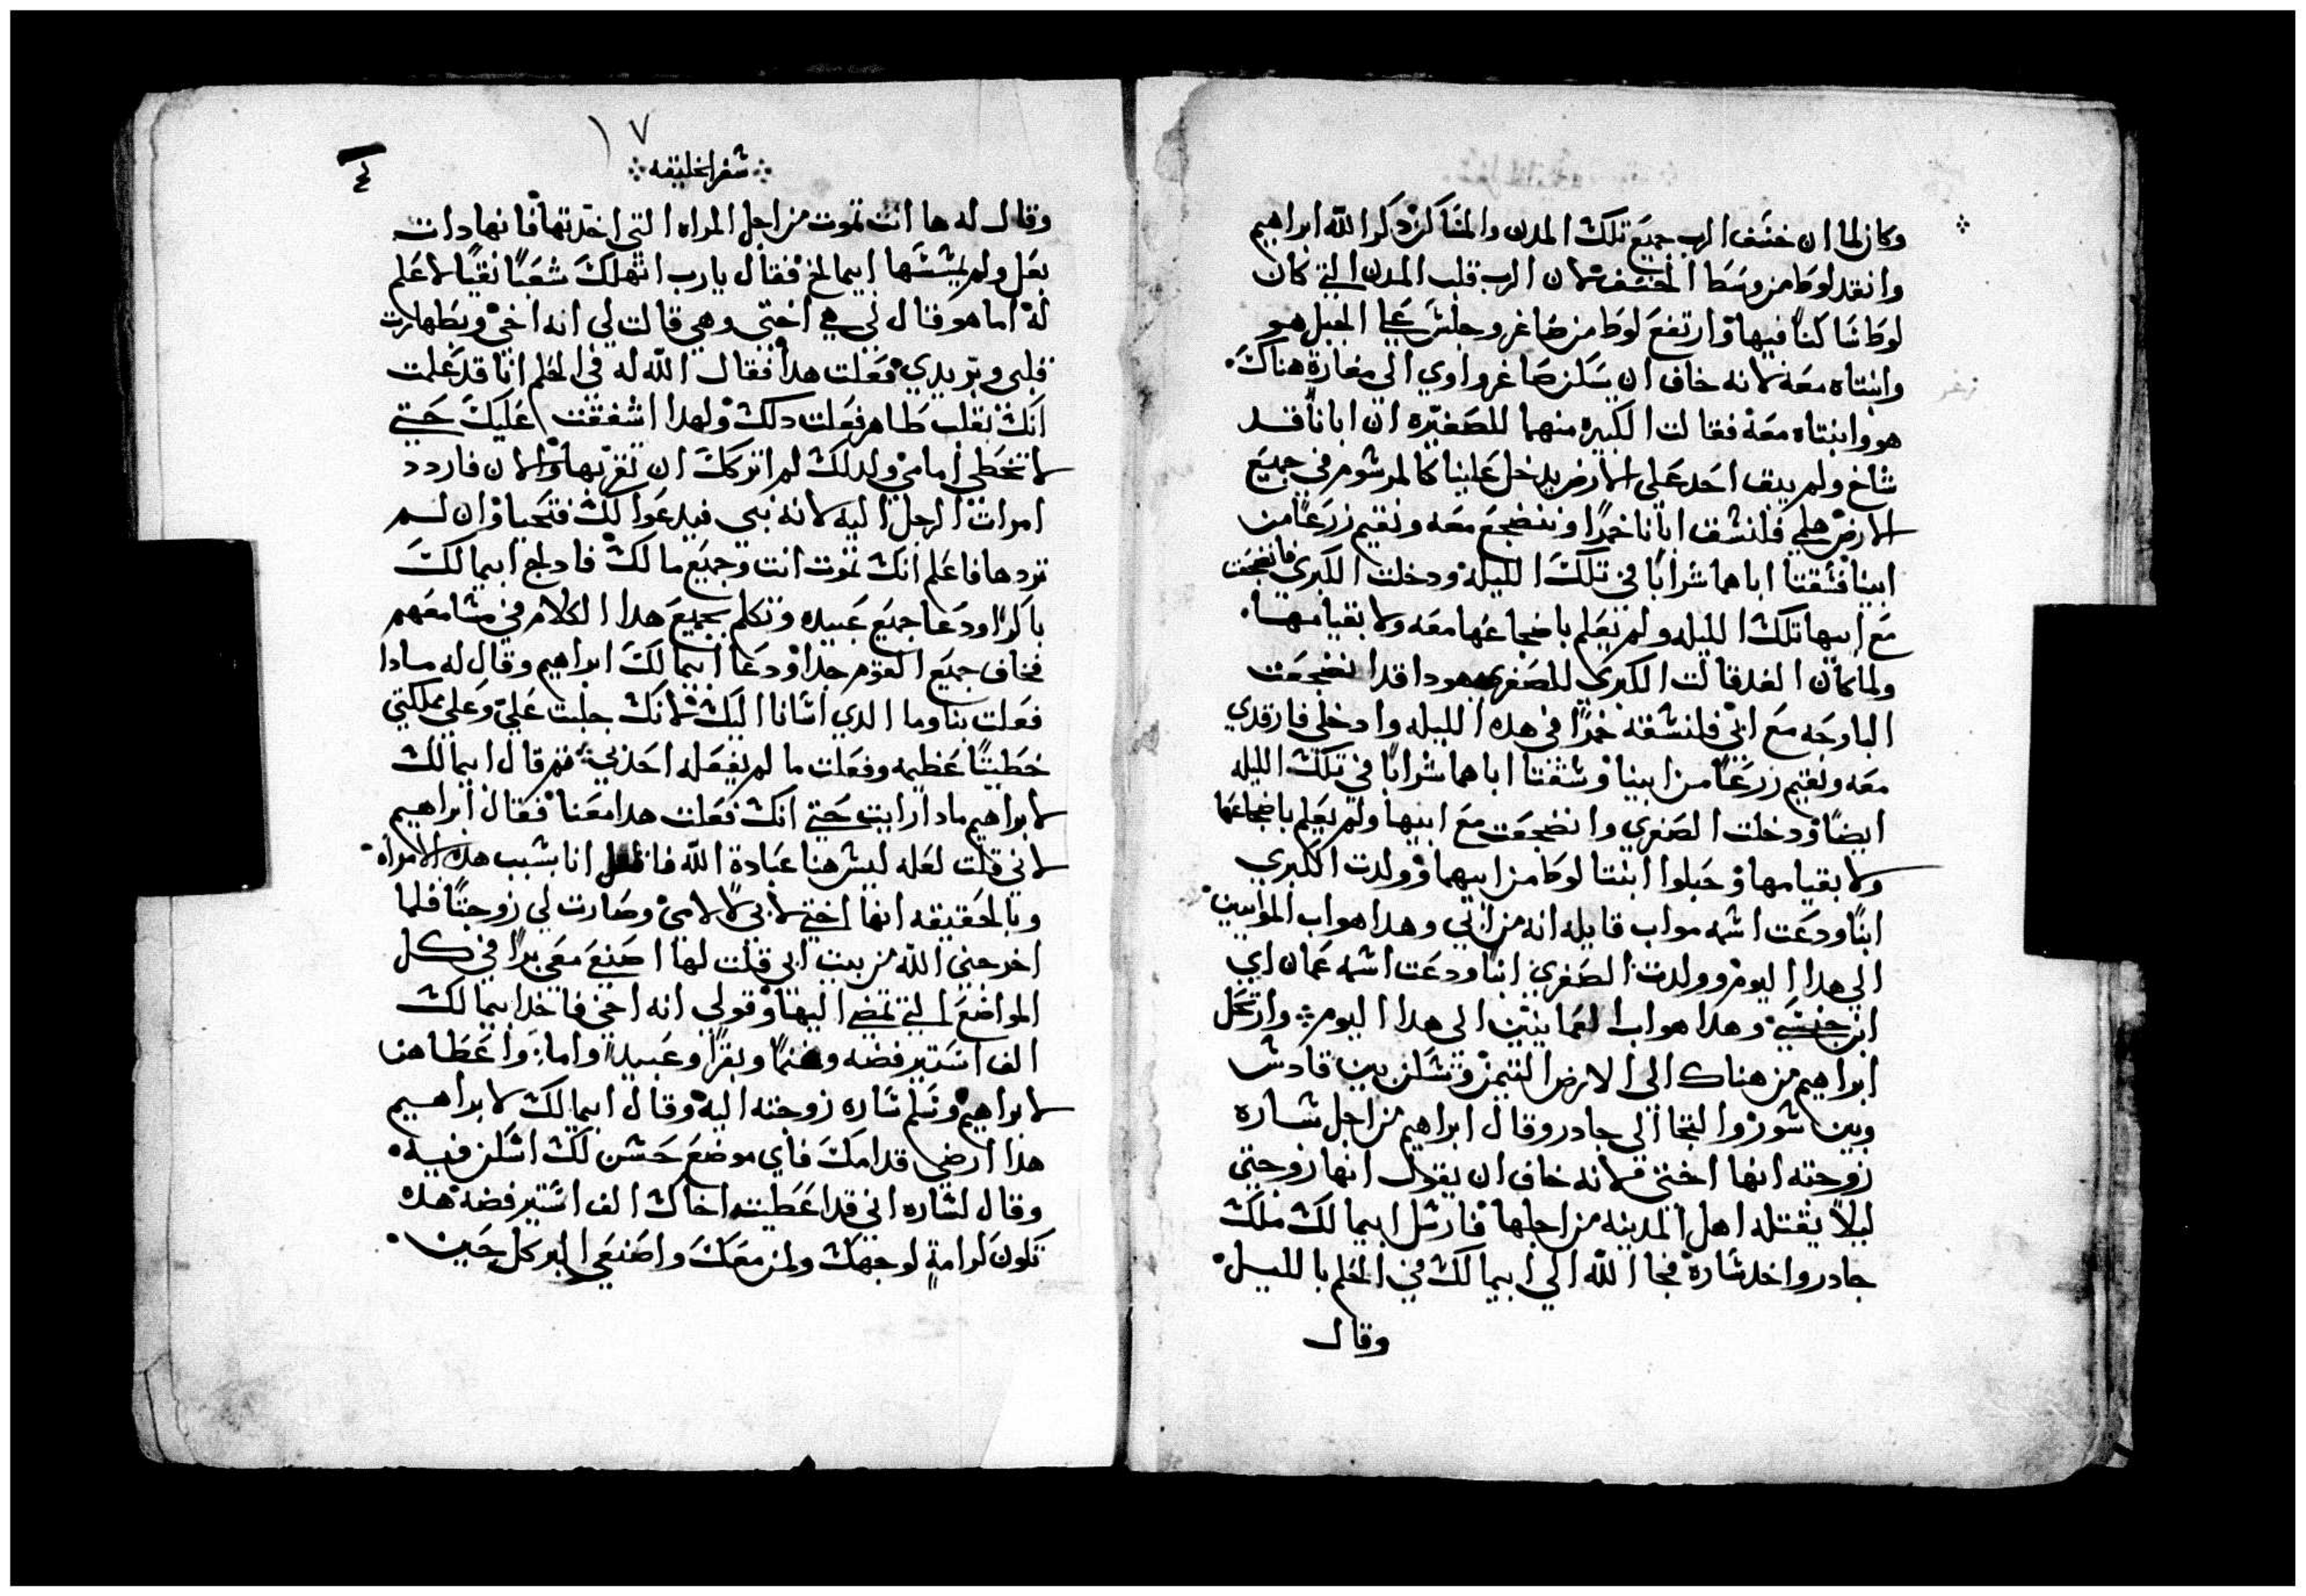 وكان لما ان خسف الرب جميع تلك المدن والمساكن ذكر الله ابراهيم
وانقد لوطا من وسط الخسف لان الرب قلب المدن التي كان
لوط ساكنًا فيها وارتفع لوط من صاغر وجلس علي الجبل هو
وابنتاه معه لانه خاف ان يسكن صاغر واوي الي مغارة هناك
هو وابنتاه معه فقالت الكبيره منهما للصغيره ان ابانا قد
شاخ ولم يبق احد علي الارض يدخل علينا كالمرسوم في جميع
الارض هلمي فلنسق ابانا خمرًا وننضجع معه ونقيم زرعًا من
ابينا فسقتا اباهما شرابًا في تلك الليله ودخلت الكبري فانضجعت
مع ابيها تلك الليله ولم يعلم باضجاعها معه ولا بقيامها
ولما كان الغد قالت الكبري للصغري هودا قد انضجعت
البارحه مع ابي فلنسقه خمرًا في هده الليله وادخلي فارقدي
معه ونقيم زرعًا من ابينا وسقتا اباهما شرابًا في تلك الليله
ايضًا ودخلت الصغري وانضجعت مع ابيها ولم يعلم باضجاعها
ولا بقيامها وحبلوا ابنتا لوط من ابيهما وولدت الكبري
ابنًا ودعت اسمه مواب قايله انه من ابي وهدا هو اب الموابيين
الي هدا اليوم وولدت الصغري ابنًا ودعت اسمه عمان اي
ابن جنسي وهدا هو اب العمانيين الى هدا اليوم وارتحل
ابراهيم من هناك الى الارض التيمن وسكن بين قادش
وبين شور والتجا الي جادر وقال ابراهيم من اجل ساره
زوجته انها اختي لانه خاف ان يقول انها زوجتي
ليلا يقتله اهل المدينه من اجلها فارسل ابيمالك ملك
جادر واخد ساره فجا الله الي ابيمالك في الحلم بالليل
وقال
١٧
سفر الخليقه
وقال له ها انت تموت من اجل المراه التي اخدتها فانها دات
بعل ولم يمسسها ابيمالخ فقال يارب اتهلك شعبًا نقيًا لا علم
له اما هو قال لي هي اختي وهي قالت لي انه اخي وبطهارت
قلبي وبر يدي فعلت هدا فقال الله له في الحلم انا قد علمت
انك بقلب طاهر فعلت دلك ولهدا اشفقت عليك حتي
لا تخطي امامي ولدلك لم اتركك ان تقربها والان فاردد
امرات الرجل اليه لانه نبي فيدعوا لك فتحيا وان لم
تردها فاعلم انك تموت انت وجميع مالك فادلج ابيمالك
باكرًا ودعا جميع عبيده وتكلم بجميع هدا الكلام في مسامعهم
فخاف جميع القوم جدًا ودعا ابيمالك ابراهيم وقال له مادا
فعلت بنا وما الدي اسانا اليك لانك جلبت علي وعلي مملكتي
خطيتًا عظيمه وفعلت ما لم يفعله احد بي ثم قال ابيمالك
لابراهيم مادا رايت حتي انك فعلت هدا معنا فقال ابراهيم
لاني قلت لعله ليس هنا عبادة الله فاقتل انا بسبب هده الامراه
وبالحقيقه انها اختي لابي لا لامي وصارت لي زوجتًا فلما
اخرجني الله من بيت ابي قلت لها اصنع معي برًا في كل
المواضع التي نمضي اليها وقولي انه اخي فاخد ابيمالك
الف استير فضه وغنمًا وبقرًا وعبيدًا واما واعطاهن
لابراهيم وسلم ساره زوجته اليه وقال ابيمالك لابراهيم
هدا ارضي قدامك فاي موضع حسن لك اسكن فيه
وقال لساره اني قد اعطيت اخاك الف استير فضه هده
تكون كرامة لوجهك ولمن معك واصنعي البر كل حين